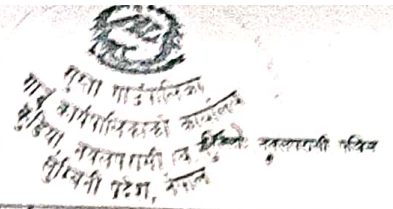 सुस्ता गाउँपालिका
गाउँ कार्यपालिकाको कार्यालय
कुडिया, नवलपरासी (ब.सु.प.) नवलपरासी पश्चिम
लुम्बिनी प्रदेश, नेपाल